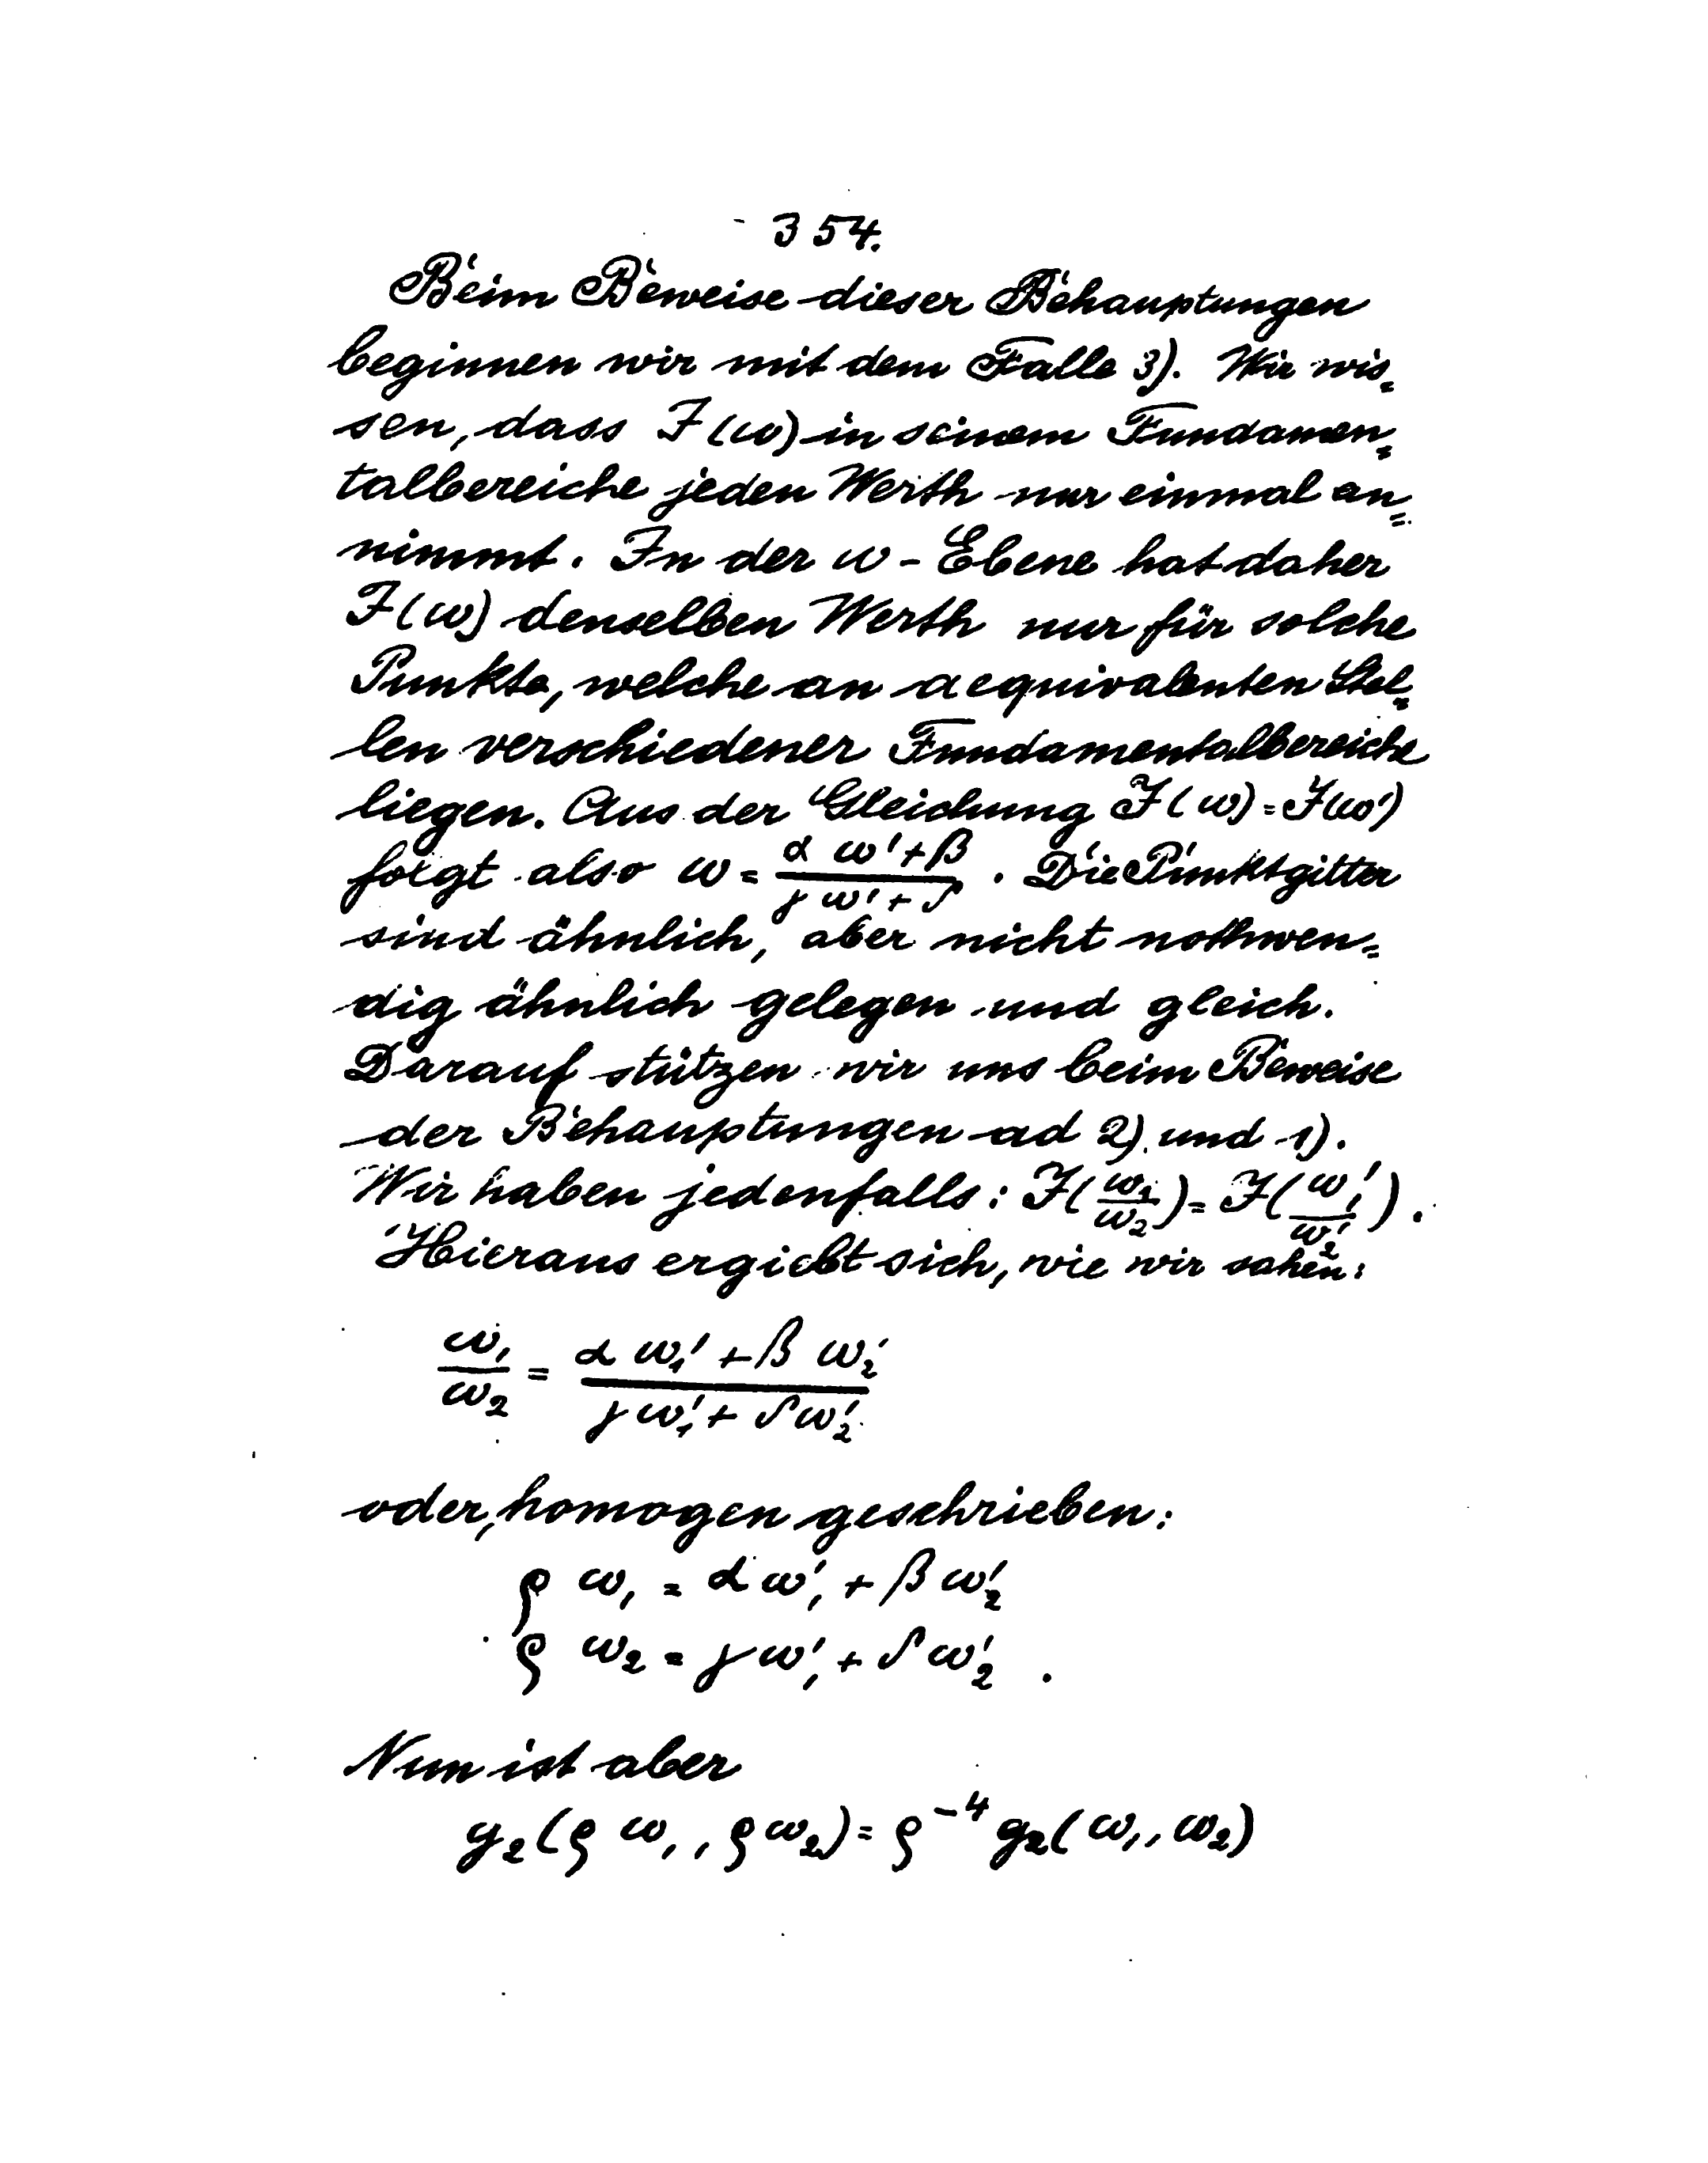 354.
Beim Beweise dieser Behauptungen
beginnen wir mit dem Falle 3). Wir wis=
sen, dass J(ω) in seinem Fundamen=
talbereiche jeden Werth nur einmal an=
nimmt. In der ω-Ebene hat daher
J(ω) denselben Werth nur für solche
Punkte, welche an aequivalenten Stel=
len verschiedener Fundamentalbereiche
liegen. Aus der Gleichung J(ω) = J(ω')
folgt also ω = (α ω' + β)/(γ ω' + δ). Die Punktgitter
sind ähnlich, aber nicht nothwen=
dig ähnlich gelegen und gleich.
Darauf stützen wir uns beim Beweise
der Behauptungen ad 2) und 1).
Wir haben jedenfalls: J(ω₁/ω₂) = J(ω₁'/ω₂').
Hieraus ergiebt sich, wie wir sahen:
ω₁/ω₂ = (α ω₁' + β ω₂')/(γ ω₁' + δ ω₂')
oder, homogen geschrieben:
ρ ω₁ = α ω₁' + β ω₂'
ρ ω₂ = γ ω₁' + δ ω₂'.
Nun ist aber
g₂(ρ ω₁, ρ ω₂) = ρ⁻⁴ g₂(ω₁, ω₂)